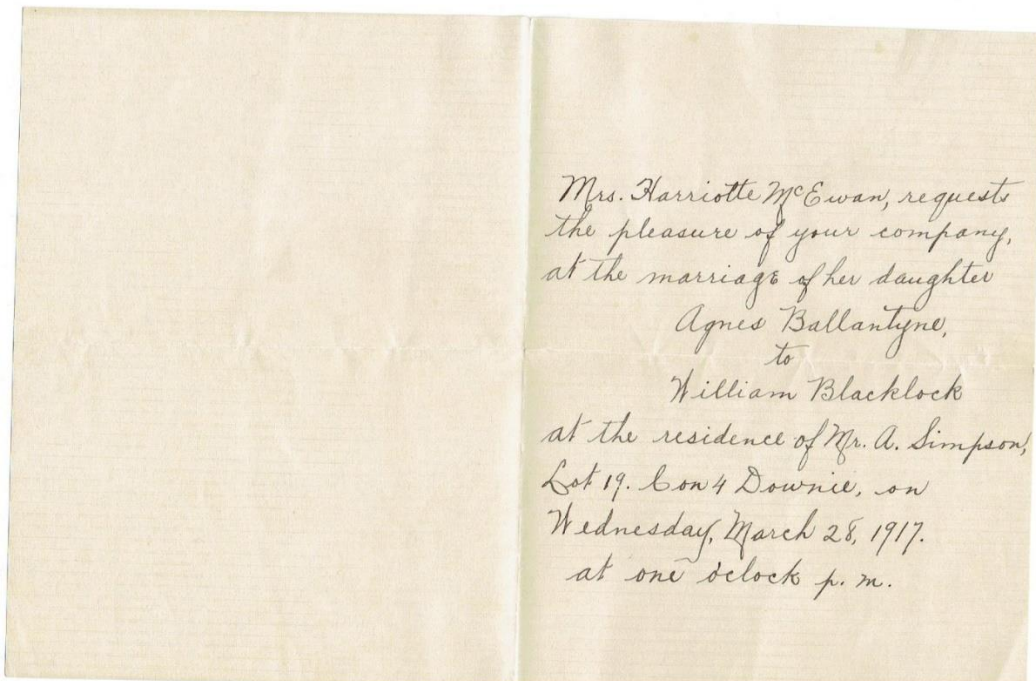 Mrs. Harriotte McEwan, requests
the pleasure of your company,
at the marriage of her daughter
Agnes Ballantyne,
to
William Blacklock
at the residence of Mr. A. Simpson,
Lot 19. Con 4 Downie, on
Wednesday, March 28, 1917.
at one o'clock p. m.